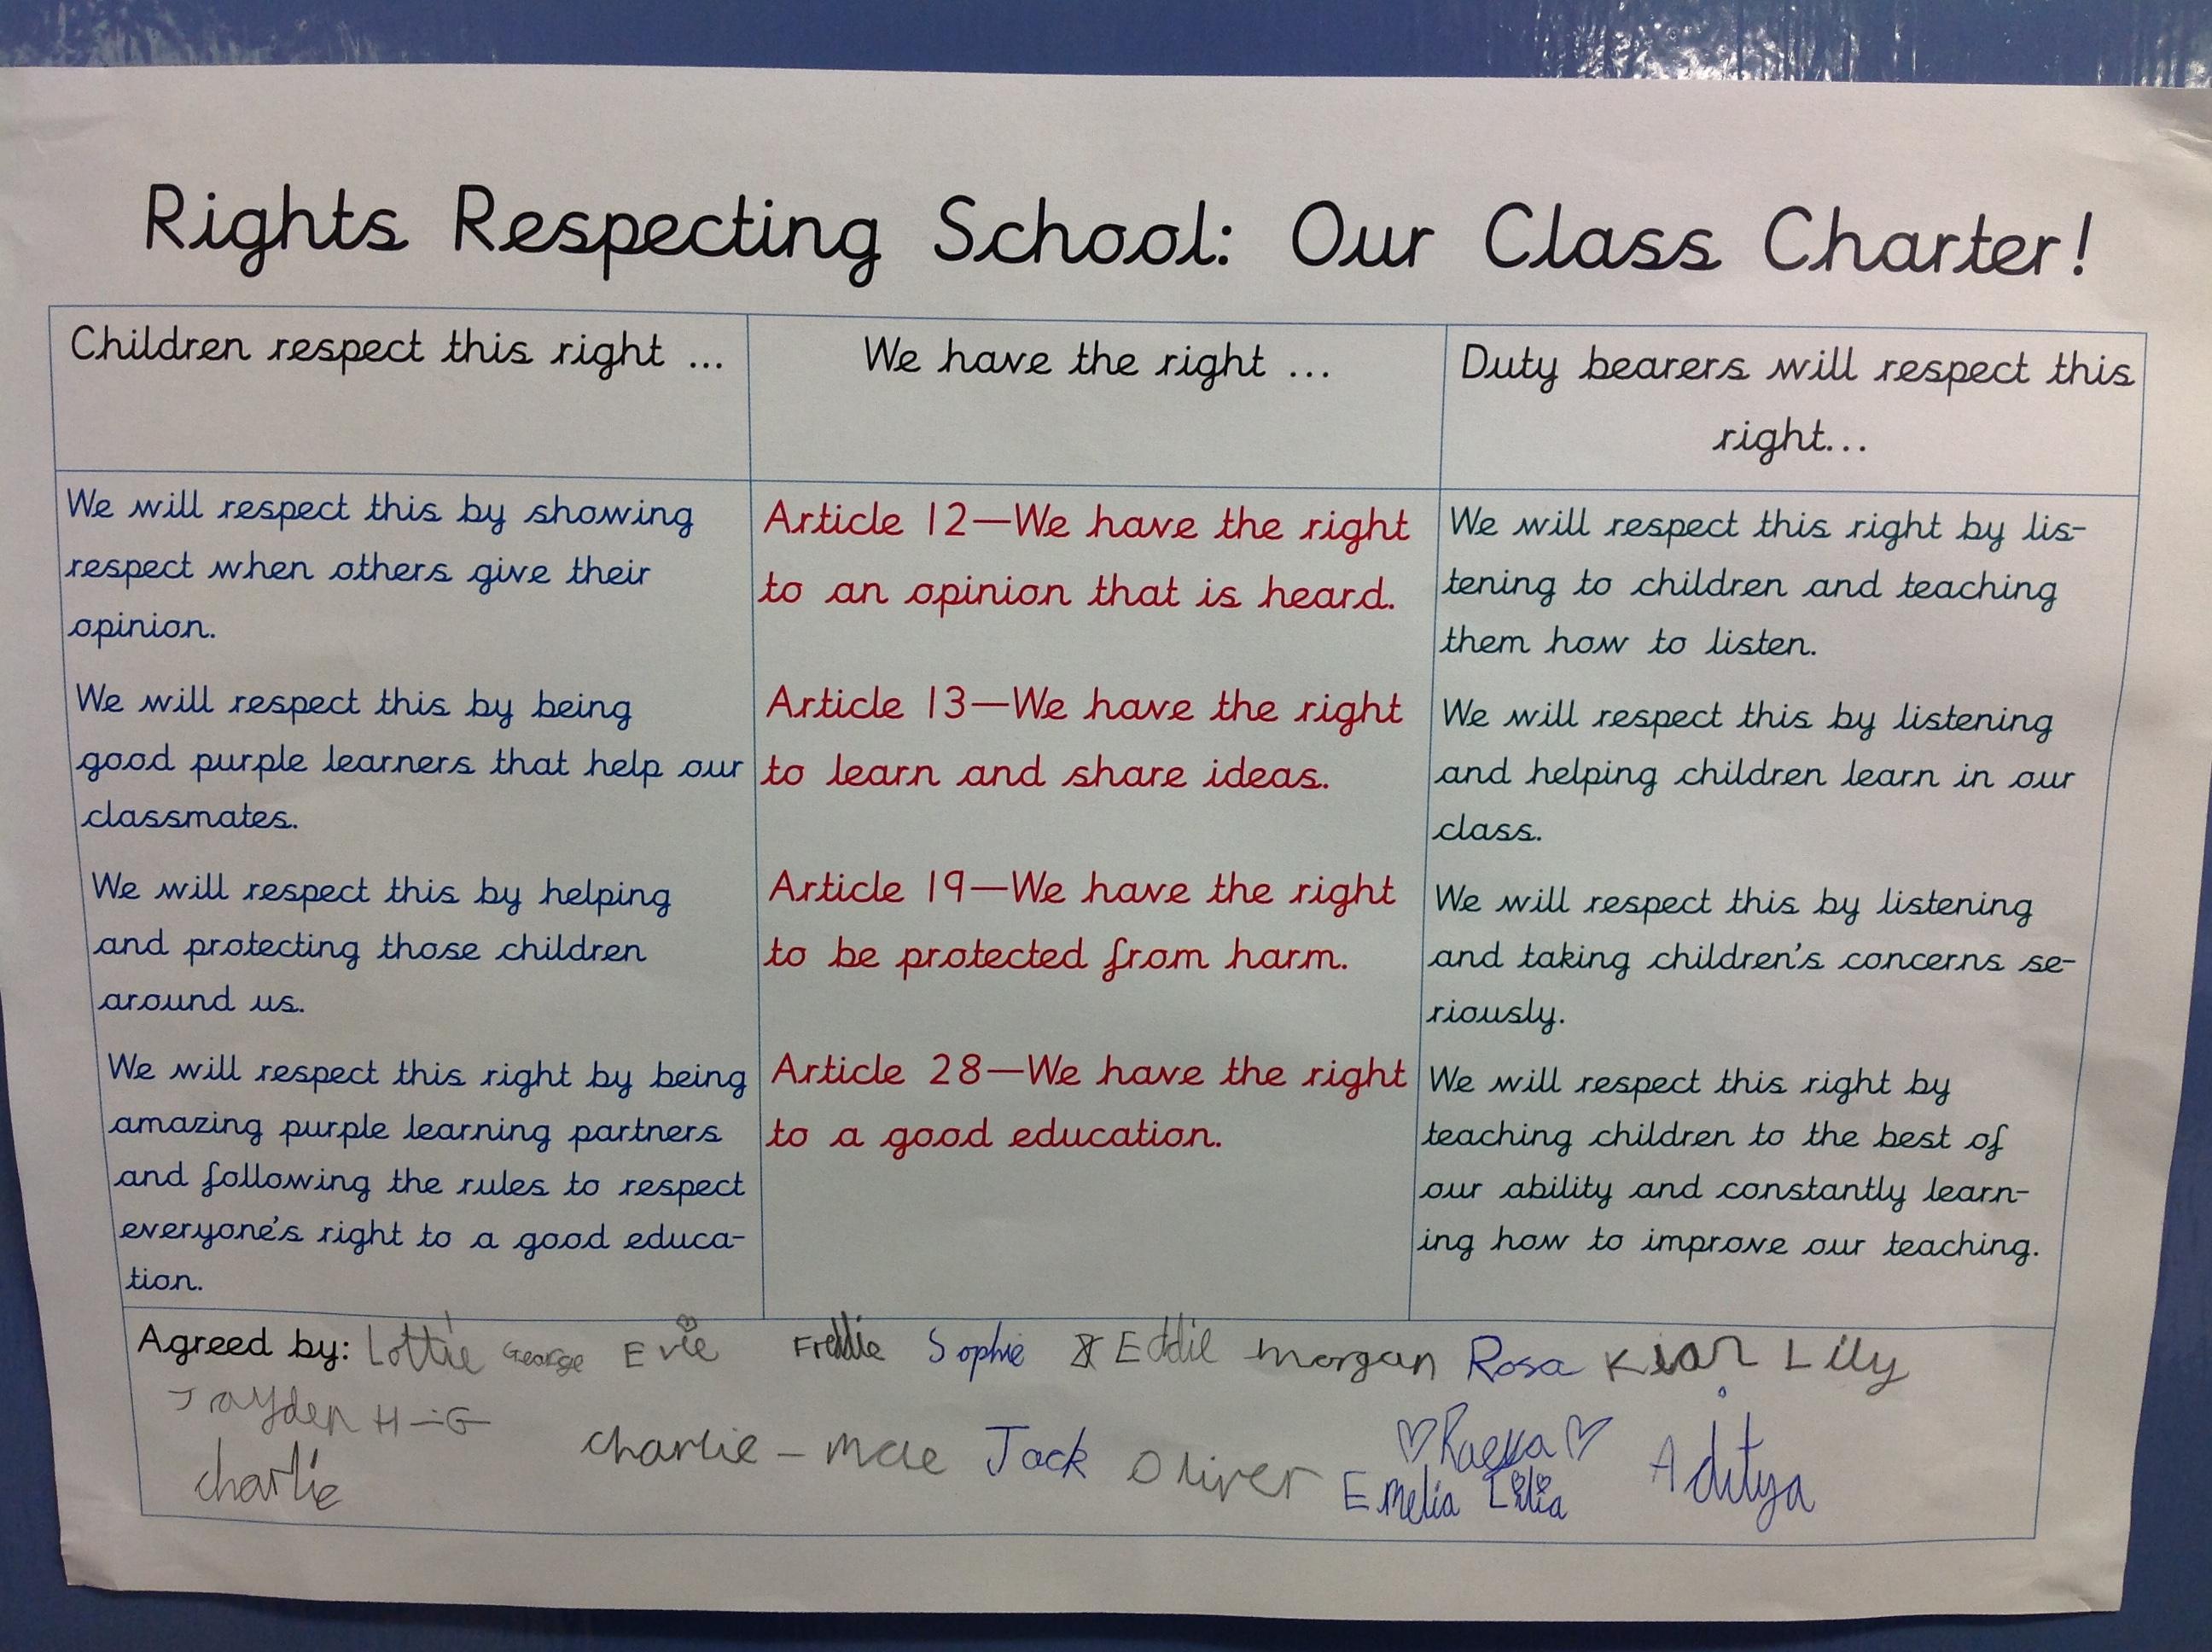 Rights Respecting School: Our Class Charter!
Children respect this right ...
We have the right ...
Duty bearers will respect this
right...
We will respect this by showing
respect when others give their
opinion.
We will respect this by being
good purple learners that help our
classmates.
We will respect this by helping
and protecting those children
around us.
We will respect this right by being
amazing purple learning partners
and following the rules to respect
everyone's right to a good educa-
tion.
Article 12—We have the right
to an opinion that is heard.
Article 13—We have the right
to learn and share ideas.
Article 19—We have the right
to be protected from harm.
Article 28—We have the right
to a good education.
We will respect this right by lis-
tening to children and teaching
them how to listen.
We will respect this by listening
and helping children learn in our
class.
We will respect this by listening
and taking children's concerns se-
riously.
We will respect this right by
teaching children to the best of
our ability and constantly learn-
ing how to improve our teaching.
Agreed by: Lottie George Evie Freddie Sophie Eddie morgan Rosa Kian Lily
Jayden H-G
charlie charlie-mae Jack Oliver
Emelia Lilia Aditya